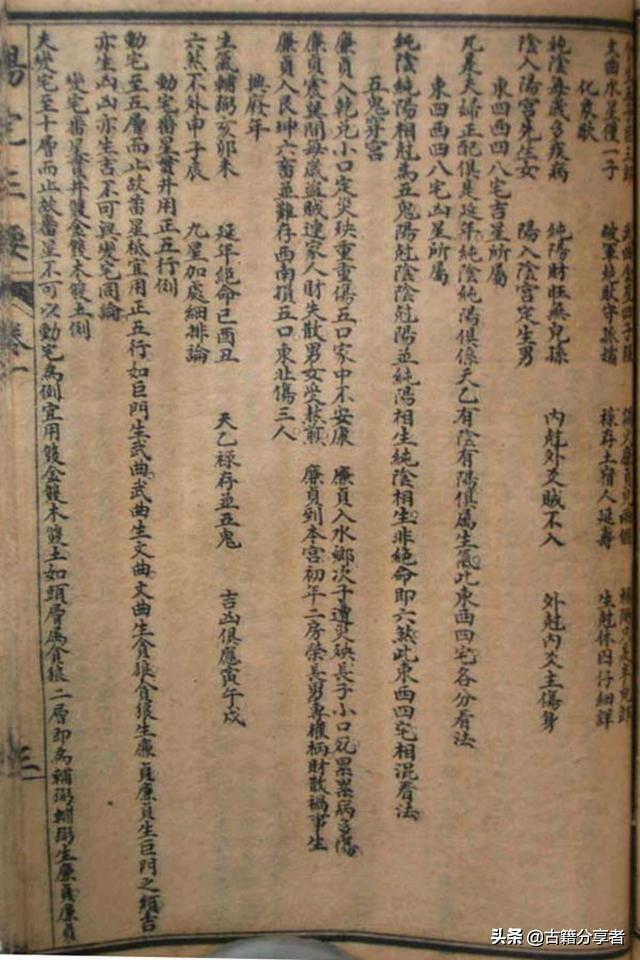 文曲水星僅一子　破軍絕敗守孤孀　祿存土宿人延壽　生尅休囚仔細詳
化爻歌
純陰每歲多疾病　純陽財旺無兒孫　內尅外爻賊不入　外尅內爻主傷身
陰入陽宮先生女　陽入陰宮定生男
東四西四八宅吉星所屬
凡是夫婦正配俱是延年純陰純陽俱係天乙有陰有陽俱屬生氣此東西四宅各分看法
東四西四八宅凶星所屬
純陰純陽相尅為五鬼陽尅陰陰尅陽並純陽相生純陰相生非絕命即六煞此東西四宅相混看法
五鬼穿宮
廉貞入乾兌小口定災殃重重傷五口家中不安康　廉貞入水鄉次子遭災殃長子小口死累累病多傷
廉貞震巽間每歲盜賊連家人財失散男女受熬煎　廉貞到本宮初年二房榮長男專權柄財散禍事生
廉貞入艮坤六畜並難存西南損五口東北傷三人
興廢年
生氣輔弼亥卯未　延年絕命巳酉丑　天乙祿存並五鬼　吉凶俱應寅午戌
六煞不外申子辰　九星加處細排論
動宅番星貫井用正五行例
動宅至五層而止故番星秪宜用正五行如巨門生武曲武曲生文曲文曲生貪狼貪狼生廉貞廉貞生巨門之類吉
亦生凶凶亦生吉不可與變宅同論
變宅番星貫井雙金雙木雙土例
夫變宅至十層而止故番星不可以動宅為例宜用雙金雙木雙土如頭層屬貪狼二層即為輔弼輔弼生廉貞廉貞
陽宅三要　卷一　三
头条 @古籍分享者